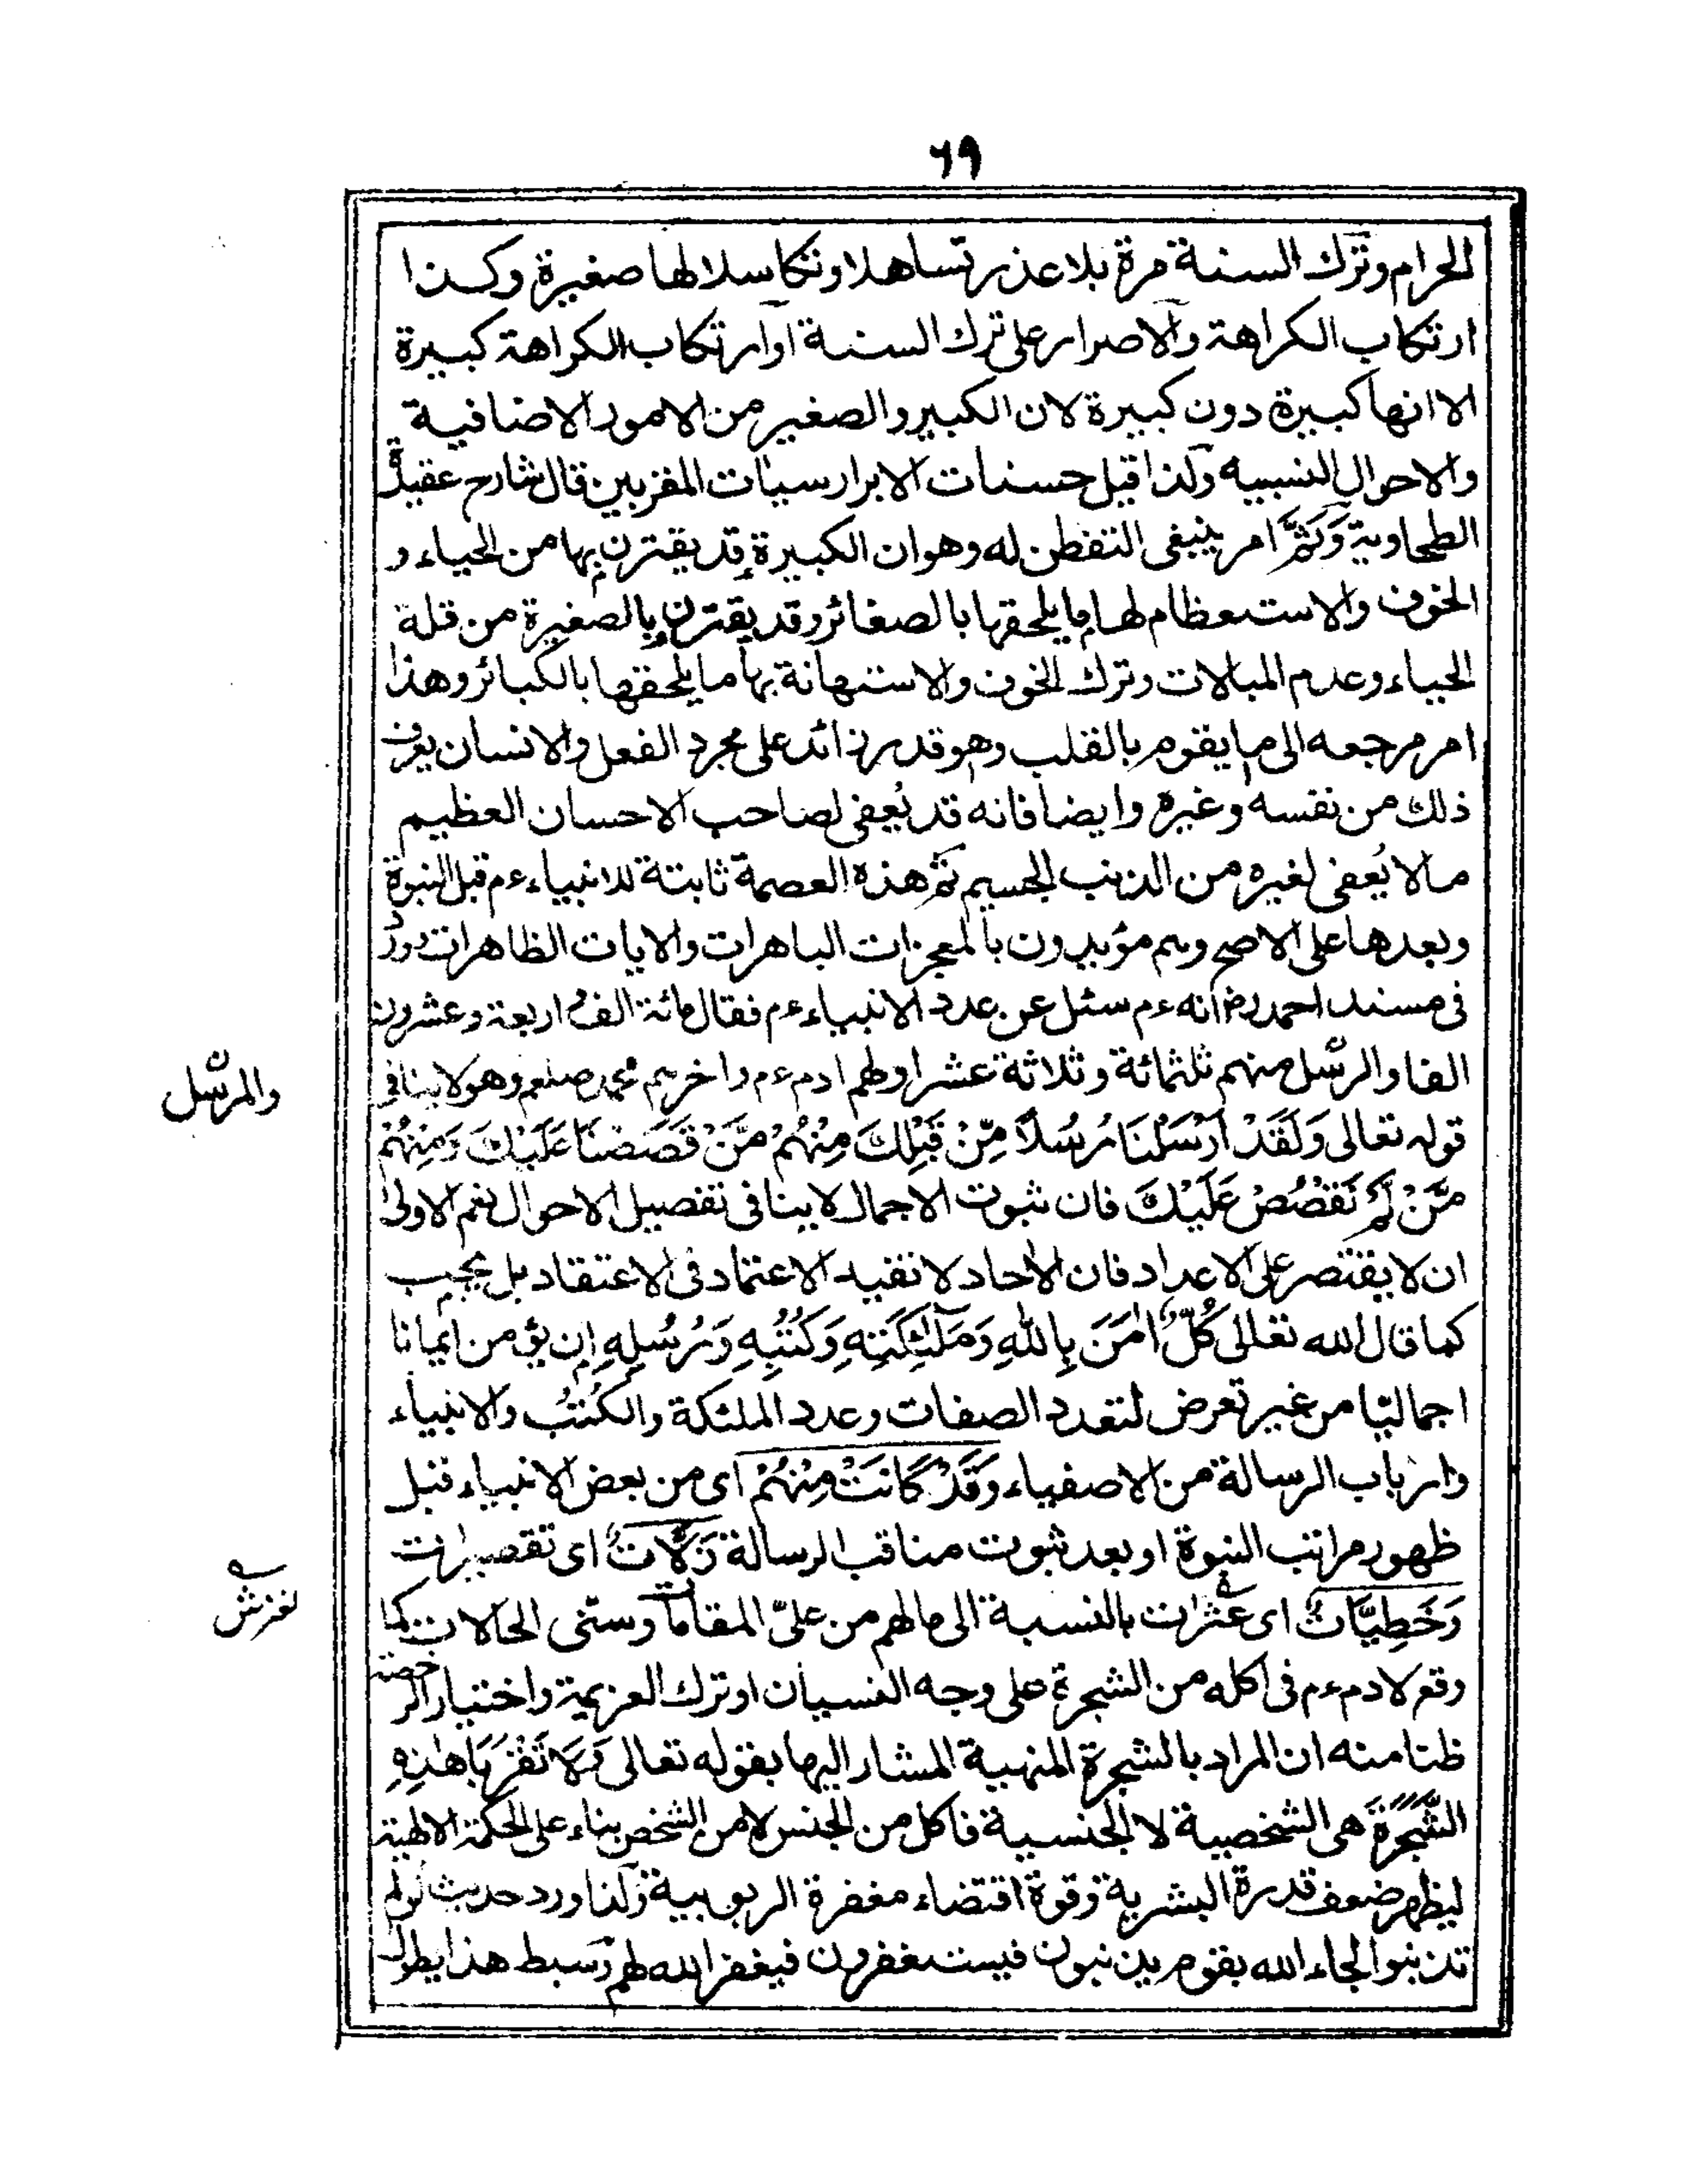 ٦٩
الحرام وترك السنة مرة بلا عذر تساهلا وتكاسلا لها صغيرة وكذا
ارتكاب الكراهة والاصرار على ترك السنة او ارتكاب الكراهة كبيرة
الا انها كبيرة دون كبيرة لان الكبير والصغير من الامور الاضافية
والاحوال النسبيه ولذا قيل حسنات الابرار سيات المقربين قال شارح عقيدة
الطحاوية وَثَمَّ امر ينبغى التفطن له وهو ان الكبيرة قد يقترن بها من الحياء و
الخوف والاستعظام لها ما يلحقها بالصغائر وقد يقترن بالصغيرة من قلة
الحياء وعدم المبالات وترك الخوف والاستهانة بها ما يلحقها بالكبائر وهذا
امر مرجعه الى ما يقوم بالقلب وهو قدر زائد على مجرد الفعل والانسان يعرف
ذلك من نفسه وغيره وايضا فانه قد يُعفى لصاحب الاحسان العظيم
مالا يُعفى لغيره من الذنب الجسيم ثم هذه العصمة ثابتة للانبياء ءم قبل النبوة
وبعدها على الاصح وهم مؤيدون بالمعجزات الباهرات والايات الظاهرات وورد
فى مسند احمد رض انه ءم سئل عن عدد الانبياء ءم فقال مائة الف واربعة وعشرون
الفا والرسل منهم ثلثمائة وثلاثة عشر اولهم ادم ءم واخرهم محمد صلعم وهو لا ينافى
والمرسل
قوله تعالى وَلَقَدْ اَرْسَلْنَا رُسُلاً مِّنْ قَبْلِكَ مِنْهُمْ مَّنْ قَصَصْنَا عَلَيْكَ وَمِنْهُمْ
مَّنْ لَّمْ نَقْصُصْ عَلَيْكَ فان ثبوت الاجمال لا ينافى تفصيل الاحوال نعم الاولى
ان لا يقتصر على الاعداد فان الاحاد لا تفيد الاعتماد فى الاعتقاد بل يجب
كما قال الله تعالى كُلٌّ اٰمَنَ بِاللّٰهِ وَمَلٰٓئِكَتِهٖ وَكُتُبِهٖ وَرُسُلِهٖ ان يؤمن ايمانا
اجماليّا من غير تعرض لتعدد الصفات وعدد الملئكة والكُتُب والانبياء
وارباب الرسالة من الاصفياء وَقَدْ كَانَتْ مِنْهُمْ اى من بعض الانبياء قبل
ظهور مراتب النبوة او بعد ثبوت مناقب الرسالة زَلَّاتٌ اى تقصيرات
وَخَطِيّاتٌ اى عثرات بالنسبة الى ما لهم من علىّ المقامات وسنّى الحالات كما
لغزش
وقع لادم ءم فى اكله من الشجرة على وجه النسيان او ترك العزيمة واختيار الرخصة
ظنا منه ان المراد بالشجرة المنهية المشار اليها بقوله تعالى وَلَا تَقْرَبَا هٰذِهِ
الشَّجَرَةَ هى الشخصية لا الجنسية فاكل من الجنس لا من الشخص بناء على الحكمة الالهية
ليظهر ضعف قدرة البشرية وقوة اقتضاء مغفرة الربوبية ولذا ورد حديث لو لم
تذنبوا لجاء الله بقوم يذنبون فيستغفرون فيغفر الله لهم وبسط هذا يطول